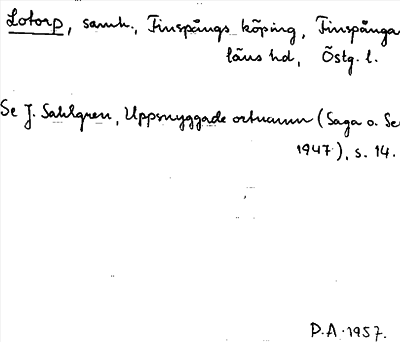 Lotorp, samh., Finspångs köping, Finspånga
läns hd, Östg. l.
Se J. Sahlgren, Uppsnyggade ortnamn (Saga o. Se
1947), s. 14.
D.A. 1957.